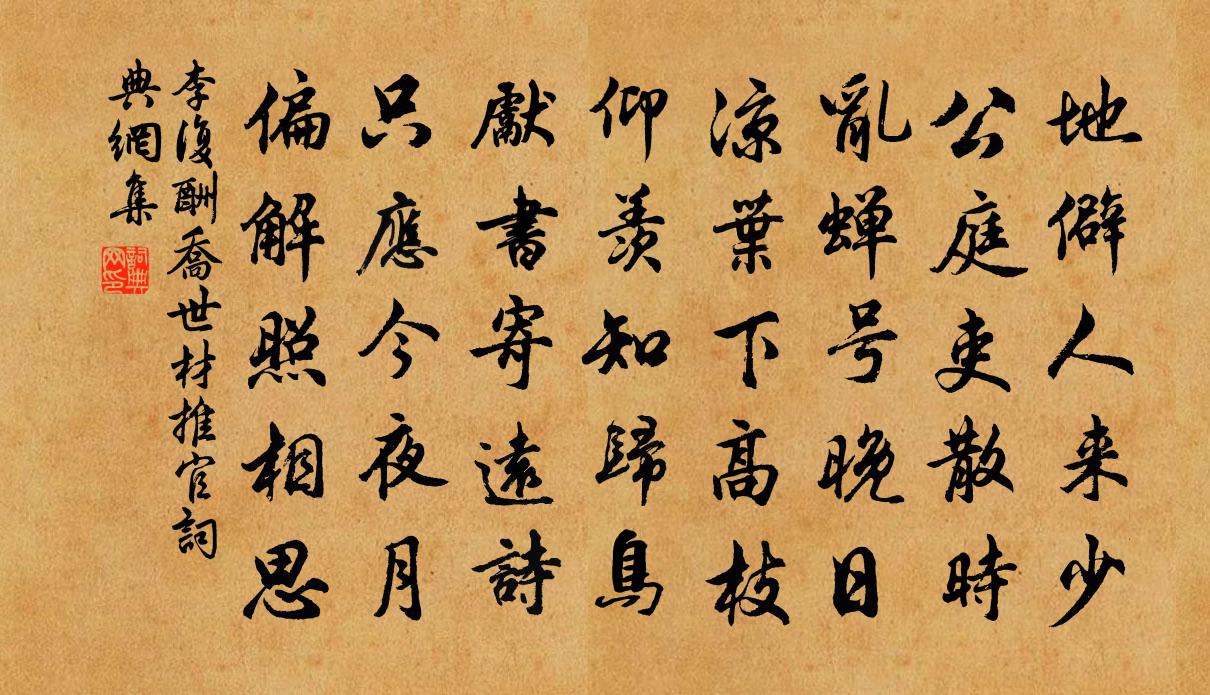 地僻人来少
公庭吏散時
亂蝉号晚日
涼葉下高枝
仰羡知歸鳥
獻書寄遠詩
只應今夜月
偏解照相思
李復酬喬世材推官詞
典網集
詞典
网印